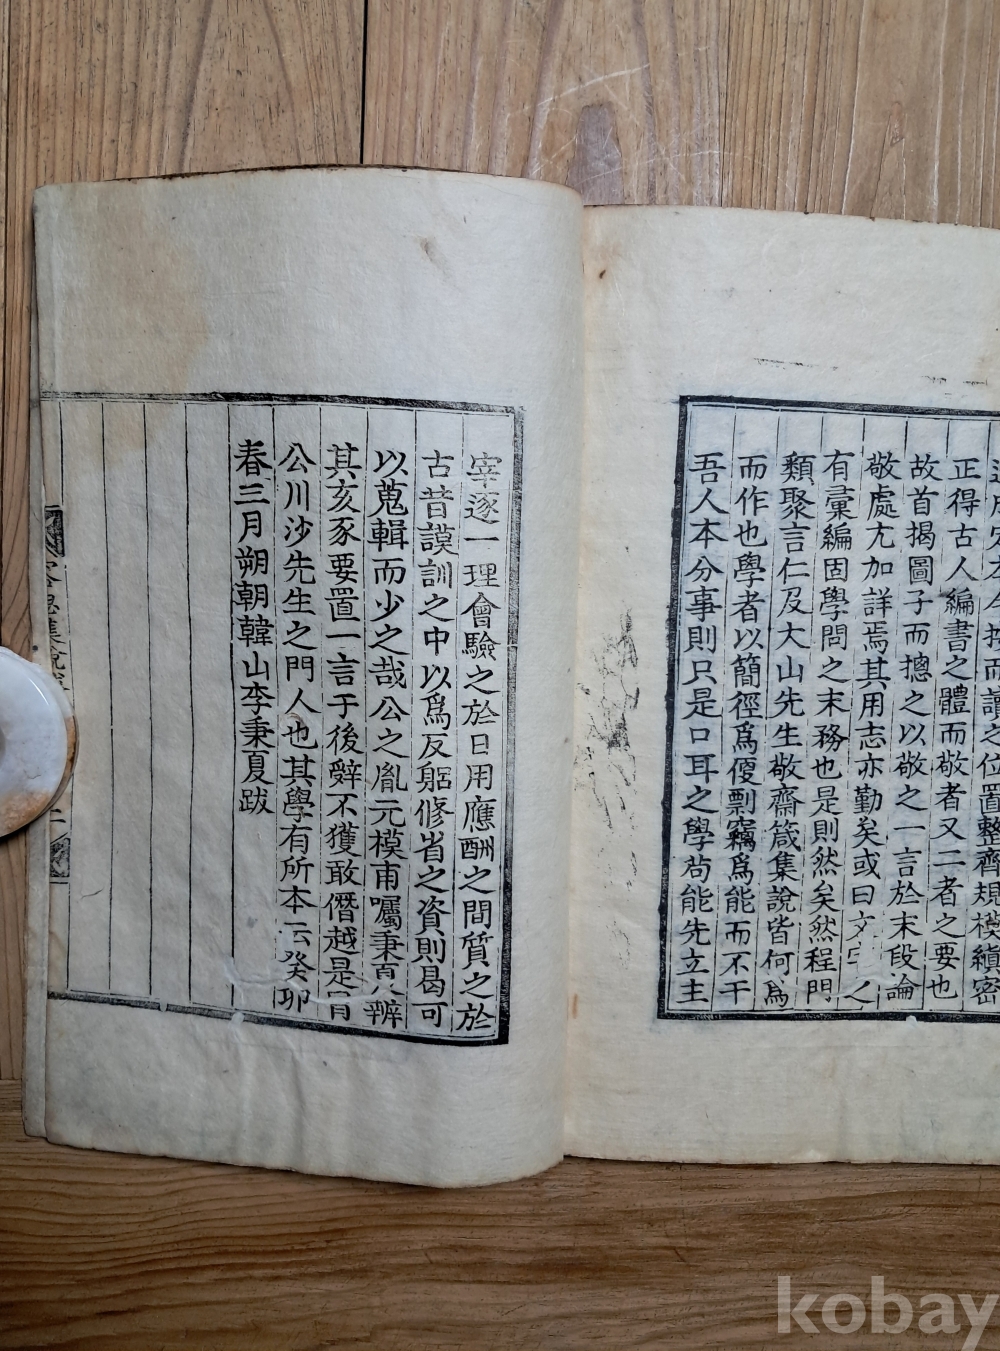 成定本今按而讀之位置整齊規模縝密
正得古人編書之體而敬者又二者之要也
故首揭圖子而摠之以敬之一言於末段論
敬處尤加詳焉其用志亦勤矣或曰文字之
有彙編固學問之末務也是則然矣然程門
類聚言仁及大山先生敬齋箴集說皆何爲
而作也學者以簡徑爲優剽竊爲能而不干
吾人本分事則只是口耳之學苟能先立主
宰逐一理會驗之於日用應酬之間質之於
古昔謨訓之中以爲反躬修省之資則曷可
以蒐輯而少之哉公之胤元模甫囑秉夏辨
其亥豕要置一言于後辭不獲敢僭越是爲
公川沙先生之門人也其學有所本云癸卯
春三月朔朝韓山李秉夏跋
思集說
二
kobay